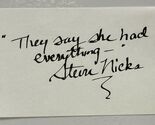 "They say she had
everything –"
Stevie Nicks